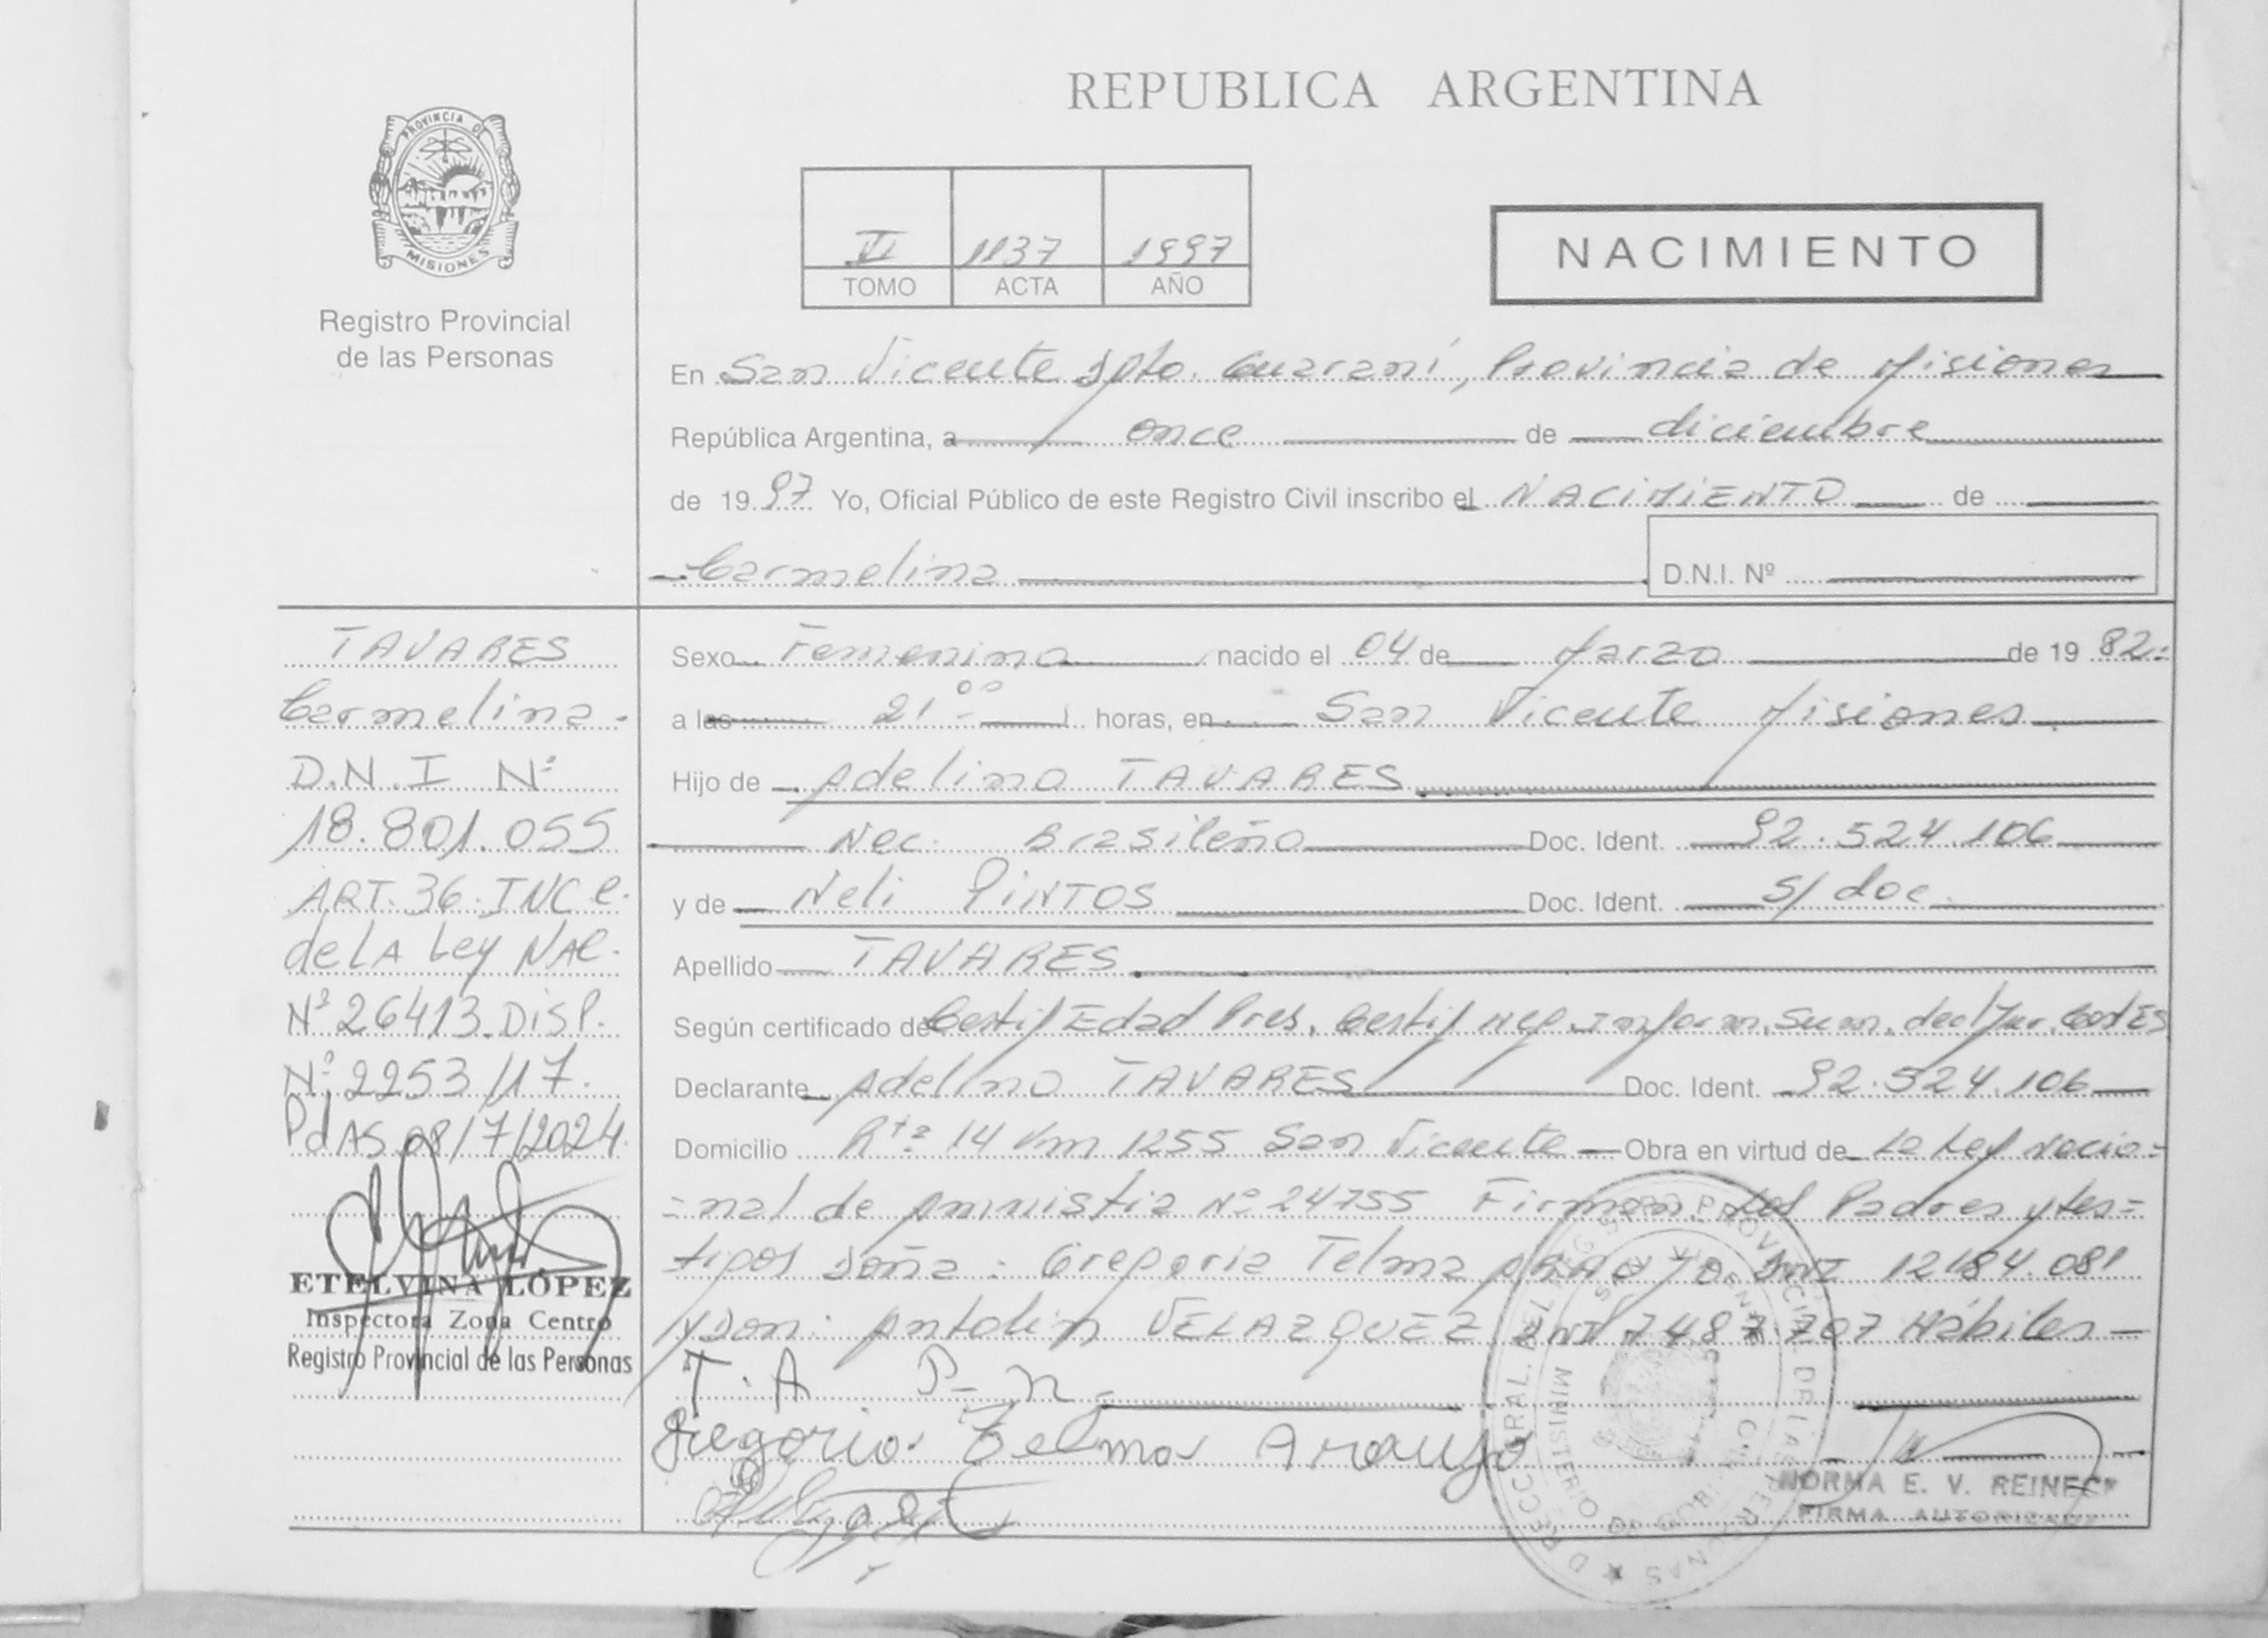 REPUBLICA ARGENTINA
PROVINCIA DE
MISIONES
Registro Provincial
de las Personas
VI 1137 1997
TOMO ACTA AÑO
NACIMIENTO
En San Vicente Dpto. Guaraní, Provincia de Misiones
República Argentina, a once de diciembre
de 1997 Yo, Oficial Público de este Registro Civil inscribo el NACIMIENTO de
Carmelina
D.N.I. Nº
TAVARES
Carmelina.
D.N.I Nº
18.801.055
ART. 36. INC c.
de LA Ley NAC.
Nº 26413. DISP.
Nº 2253/17.
PdAS 08/7/2024.
ETELVINA LÓPEZ
Inspectora Zona Centro
Registro Provincial de las Personas
Sexo Femenino nacido el 04 de Marzo de 1982.
a las 21ºº horas, en San Vicente Misiones
Hijo de Adelino TAVARES
Nac. Brasileño Doc. Ident. 92.524.106
y de Neli PINTOS Doc. Ident. s/doc
Apellido TAVARES
Según certificado de Certif Edad Pres. Certif neg. Inform. Sum. decl Jur.
Declarante Adelino TAVARES Doc. Ident. 92.524.106
Domicilio Rta 14 Km 1255 San Vicente Obra en virtud de La Ley Nacio=
=nal de Amnistia Nº 24755 Firman los Padres y tes=
tigos Doña: Gregoria Telma ARAUJO DNI 12184.081
y Don: Antolin VELAZQUEZ DNI 7487.707 Hábiles
T. A P- n.
Gregoria Telma Araujo
NORMA E. V. REINECK
FIRMA AUTORIZADA